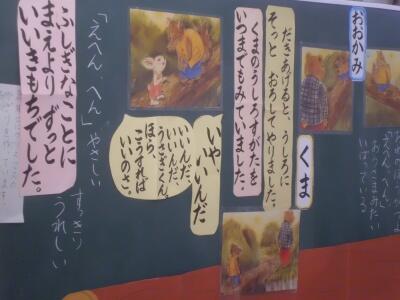 「えへん、へん」
おうさまみたい
いばっている
おおかみ
くま
だきあげると、うしろに
そっと おろしてやりました。
くまのうしろすがたを
いつまでもみていました。
いや、いいんだ
いいんだ、
いいんだ、
うさぎくん。
ほら、
こうすれば
いいのさ。
「えへん、へん」やさしい
すっきり
うれしい
ふしぎなことに
まえより ずっと
いいきもちでした。